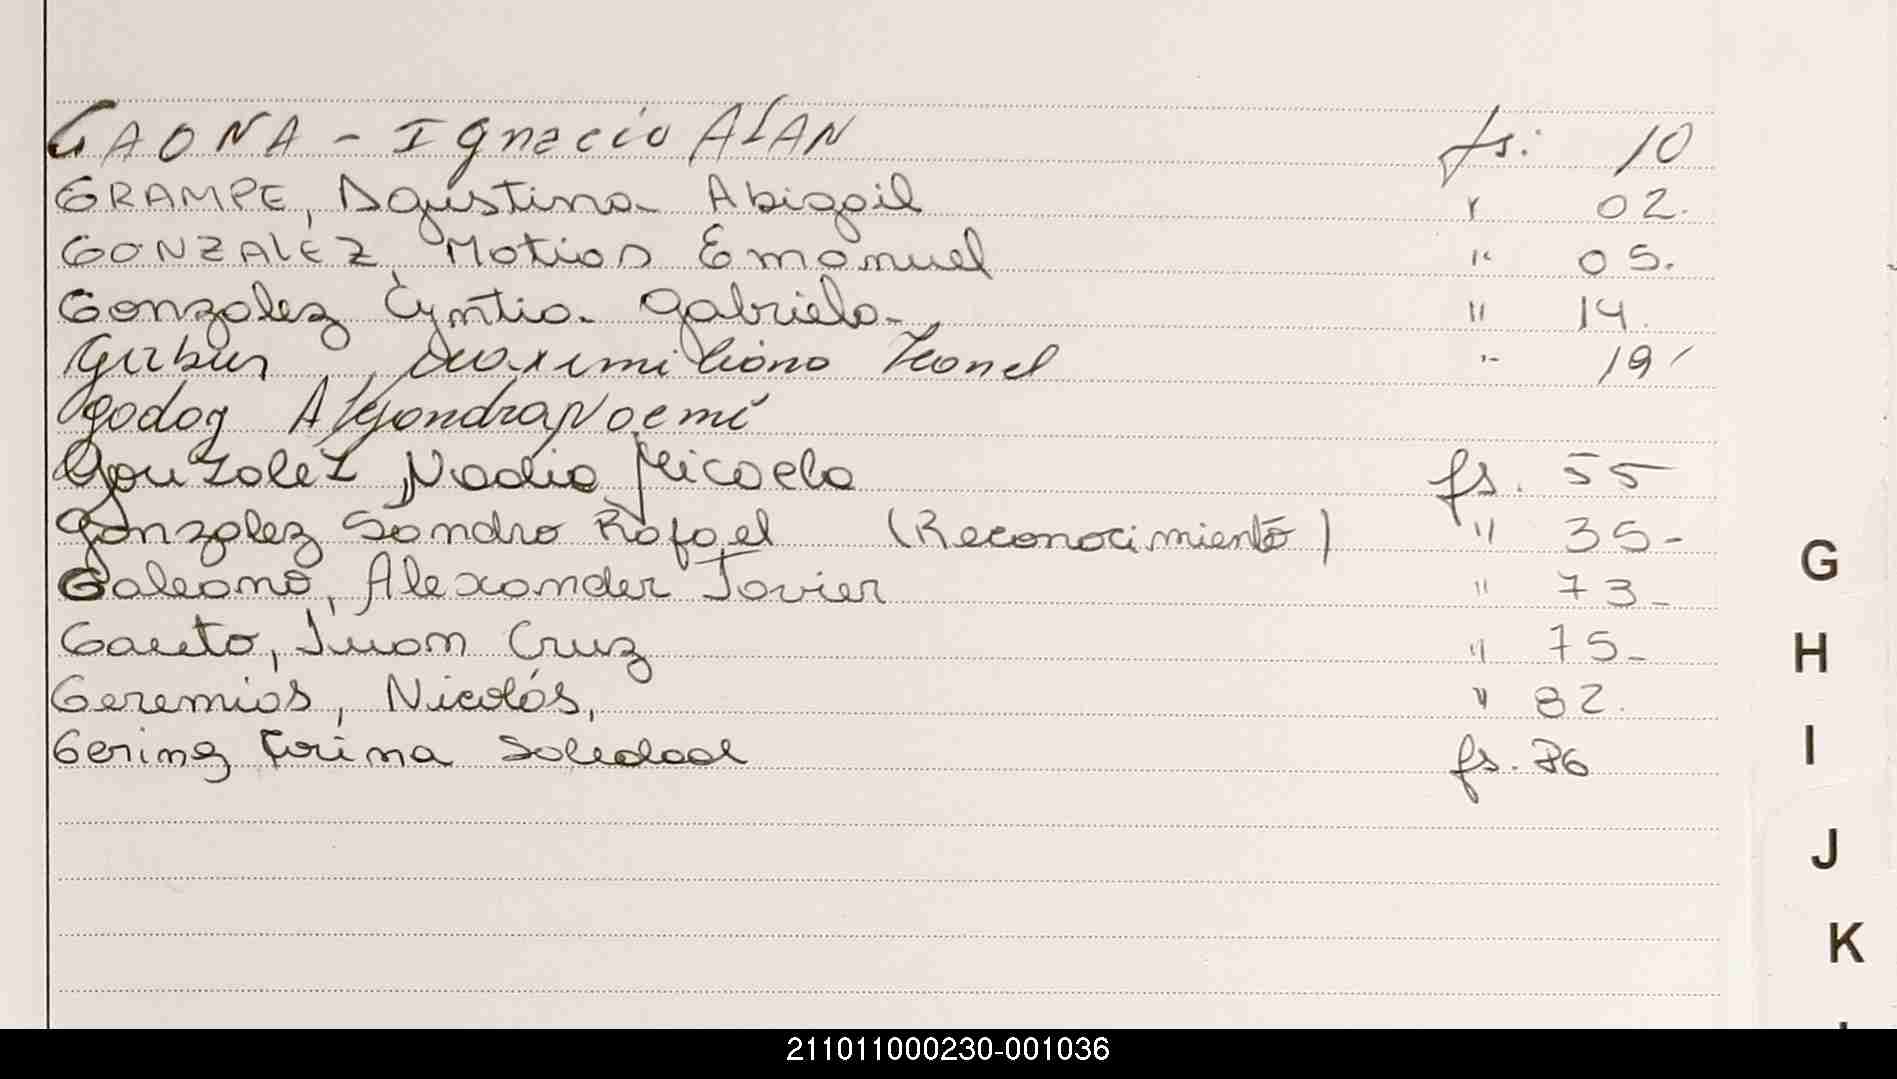 GAONA - Ignacio ALAN fs: 10
GRAMPE, Agustina Abigail " 02.
GONZALEZ, Matias Emanuel " 05.
Gonzalez Cyntia Gabriela " 14.
Maximiliano Leonel " 19
Godoy Alejandra Noemí
Gonzalez, Nadia Micaela fs. 55
Gonzalez Sandro Rafael (Reconocimiento) " 35-
Galeano, Alexander Javier " 73-
Gauto, Juan Cruz " 75-
Geremias, Nicolás, " 82.
Gering Soledad fs.
G
H
I
J
K
211011000230-001036